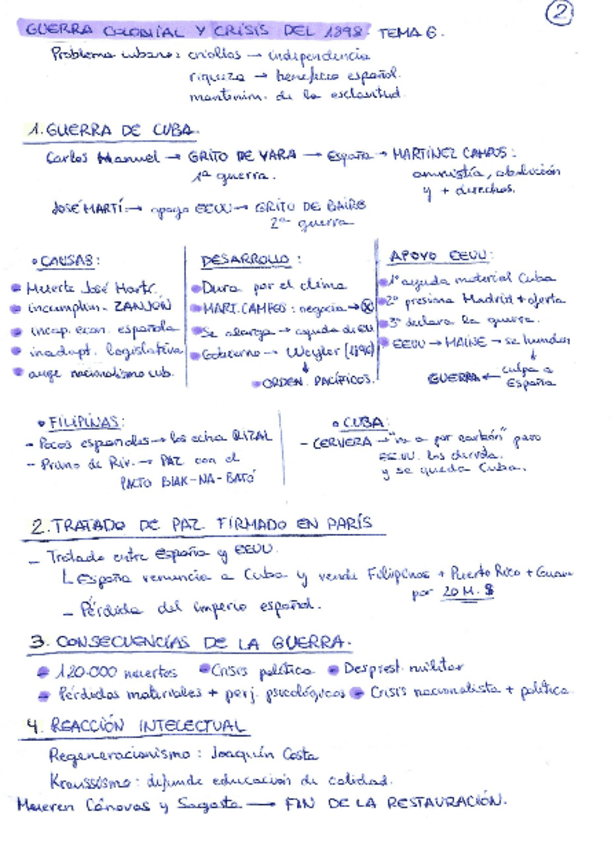 2
GUERRA COLONIAL Y CRISIS DEL 1898. TEMA 6.
Problema cubano: criollos → independencia
riqueza → beneficio español.
mantenim. de la esclavitud.
1. GUERRA DE CUBA.
Carlos Manuel → GRITO DE YARA → España → MARTÍNEZ CAMPOS:
1ª guerra.
amnistía, abolución
y + derechos.
JOSÉ MARTÍ: → apoyo EEUU → GRITO DE BAIRE
2ª guerra
• CAUSAS:
Muerte José Martí.
incumplim. ZANJÓN
incap. econ. española
inadapt. legislativa
auge nacionalismo cub.
DESARROLLO:
Dura por el clima
MART. CAMPOS: negocia → ⊗
Se alarga → ayuda de EU
Gobierno → Weyler (1896)
↓
ORDEN. PACÍFICOS.
APOYO EEUU:
1º ayuda material Cuba
2º presiona Madrid + oferta
3º declara la guerra.
EEUU → MAINE → se hunde
↓
GUERRA ← culpa a
España
• FILIPINAS:
- Pocos españoles → los echa RIZAL
- Primo de Riv. → PAZ con el
PACTO BIAK-NA-BATÓ
• CUBA:
- CERVERA → "va a por carbón" pero
EE.UU. los derrota.
y se queda Cuba.
2. TRATADO DE PAZ FIRMADO EN PARÍS
- Tratado entre España y EEUU.
España renuncia a Cuba y vende Filipinas + Puerto Rico + Guam
por 20 M. $
- Pérdida del imperio español.
3. CONSECUENCIAS DE LA GUERRA.
120.000 muertos Crisis política Desprest. militar
Pérdidas materiales + perj. psicológicos Crisis nacionalista + política
4. REACCIÓN INTELECTUAL
Regeneracionismo: Joaquín Costa
Kraussismo: defiende educación de calidad.
Mueren Cánovas y Sagasta → FIN DE LA RESTAURACIÓN.